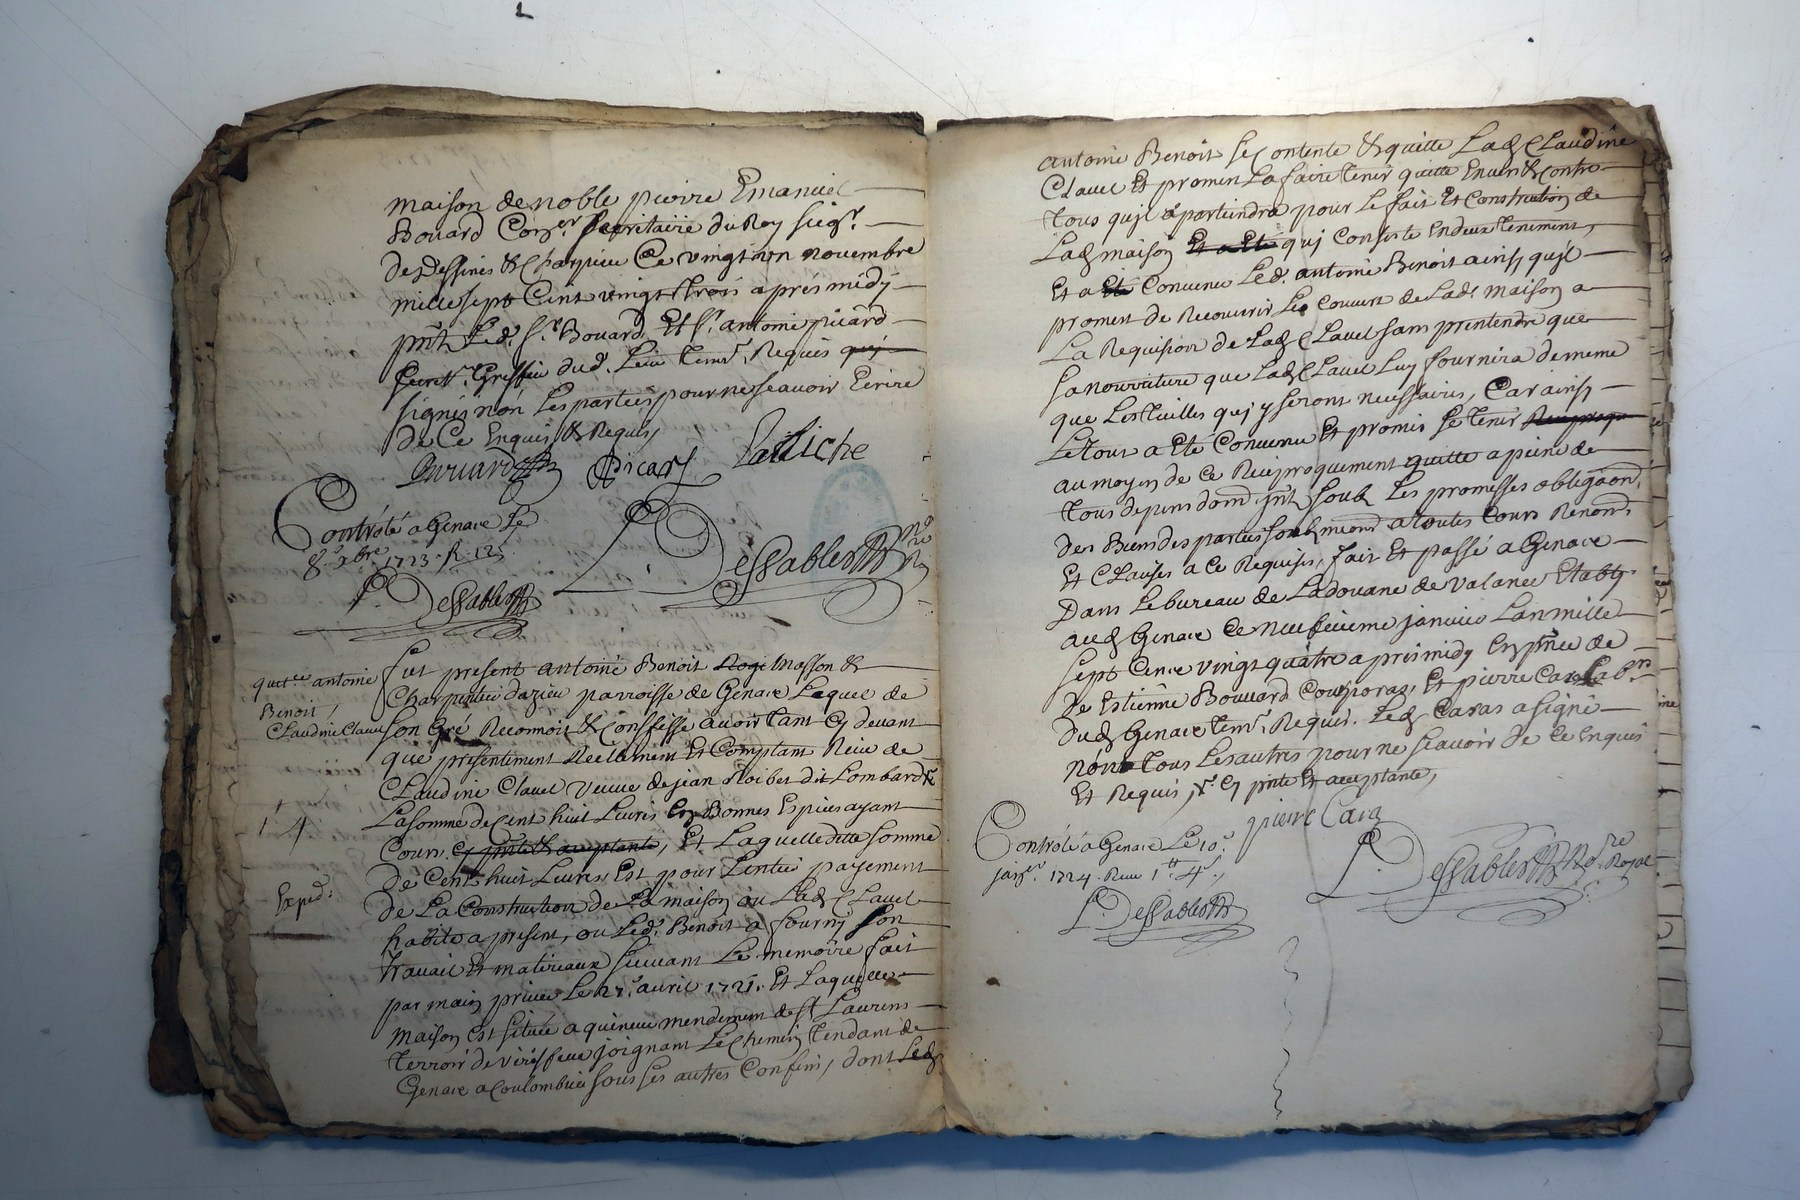 maison de noble pierre Emanuel
Bouard Con.er Secretaire du Roy sieg.r
des Essines & Charpieu Ce vingt un novembre
mille sept Cent vingt trois apres midy
pnt Led. S.r Bouard, Et S.r antoine picard
Secret.re Greffier dud. Lieu tem.s Requis qui
signés nón Les parties pour ne scavoir Ecrire
de Ce Enquis & Requis
Bouard Picard Laliche
Contrólé a Genace Le
8.e xbre 1723. R. 12 s
L. Dessables
L. Dessables no.re R.
quitt.ce antoine
Benoit,
Claudine Clavel
1 4
Exped.
fut present antoine Benoit Masson &
Charpentier dazieu parroisse de Genace Lequel de
son Gré Reconnoit & Conffesse avoir tant Cy devant
que presentiment Reelement Et Comptant Reiue de
Claudine Clavel Veuve de jean Noibet dit Lombard x
La somme de Cent huit Livres En Bonnes Espices ayant
Cours. Cy pnte & acceptante, Et Laquelle ditte somme
de Cent huit Livres Est pour Lentier payement
de La Construction de La maison ou Lad. Clavel
habite a present, ou Led. Benoit a fourny son
travail Et materiaux suivant Le memoire fait
par main privée Le 27.e avril 1721. Et Laquelle
maison est située a quineuu mendement de St Laurens
terroir de virisseue joignant Le Chemin tendant de
Genace a Coulombier sous ses autres Confins, dont Led.
antoine Benoit se Contente & quitte Lad. Claudine
Clavel Et promet La faire tenir quitte Envers & Contre
tous quil apartiendra pour Le fait Et Construction de
Lad. maison Et a Eté qui Consiste En deux tenement,
Et a Eté Convenu Led. antoine Benoit ainsy quil
promet de Recouvrir Le Couvert de Lad. maison a
La Requision de Lad. Clavel sans pretendre que
sa nourriture que Lad. Clavel Luy fournira de meme
que Les tuilles quj y seront necessaires, Car ainsy
Le tout a Eté Convenu Et promis se tenir Reciproq.
au moyen de Ce Reciproquement quitte a peine de
tous depens dom. jnt soub Les promesses obligaon.
des Biens des parties soub.meons a toutes Cours Renon.
Et Clauses a Ce Requises, fait Et passé a Genace
Dans Le bureau de La douane de valance Etably
aud. Genace Ce neufvieme janvier Lan mille
sept Cent vingt quatre apres midy En pnce de
de Estienne Bouvard Couporas, Et pierre Caras Lab.r
dud. Genace tem.s Requis. Led. Caras a signé
nón tous Les autres pour ne scavoir de Ce Enquis
Et Requis, x Cy pnte Et acceptante,
pierre Cara
Contrólé a Genace Le 10.e
janv.r 1724. Reiu 1.tt 4.s
L. Dessables
L. Dessables No.re Royal